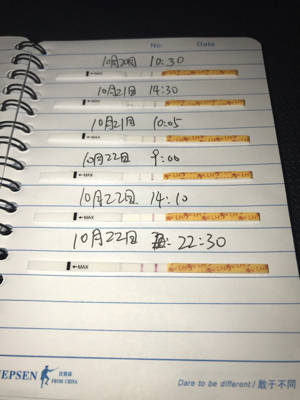 No. Date
10月20日 10:30
←MAX
10月21日 14:30
←MAX
10月21日 10:05
←MAX
10月22日 9:00
←MAX LH
10月22日 14:10
←MAX LH
10月22日 22:30
←MAX LH
JEPSEN FROM CHINA Dare to be different! / 敢于不同